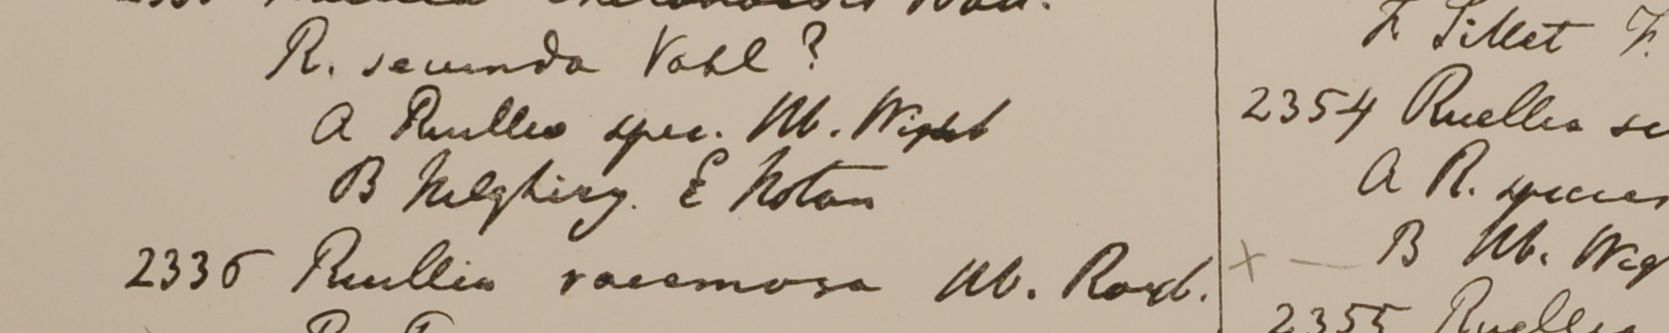 R. secunda Vahl?
A Ruellia spec. Hb. Wight
B Nelghiry. E Notan
2336 Ruellia racemosa Hb. Roxb.
F Sillet F.
2354 Ruellia se
A R. species
B Hb. Wig
2355 Ruellia